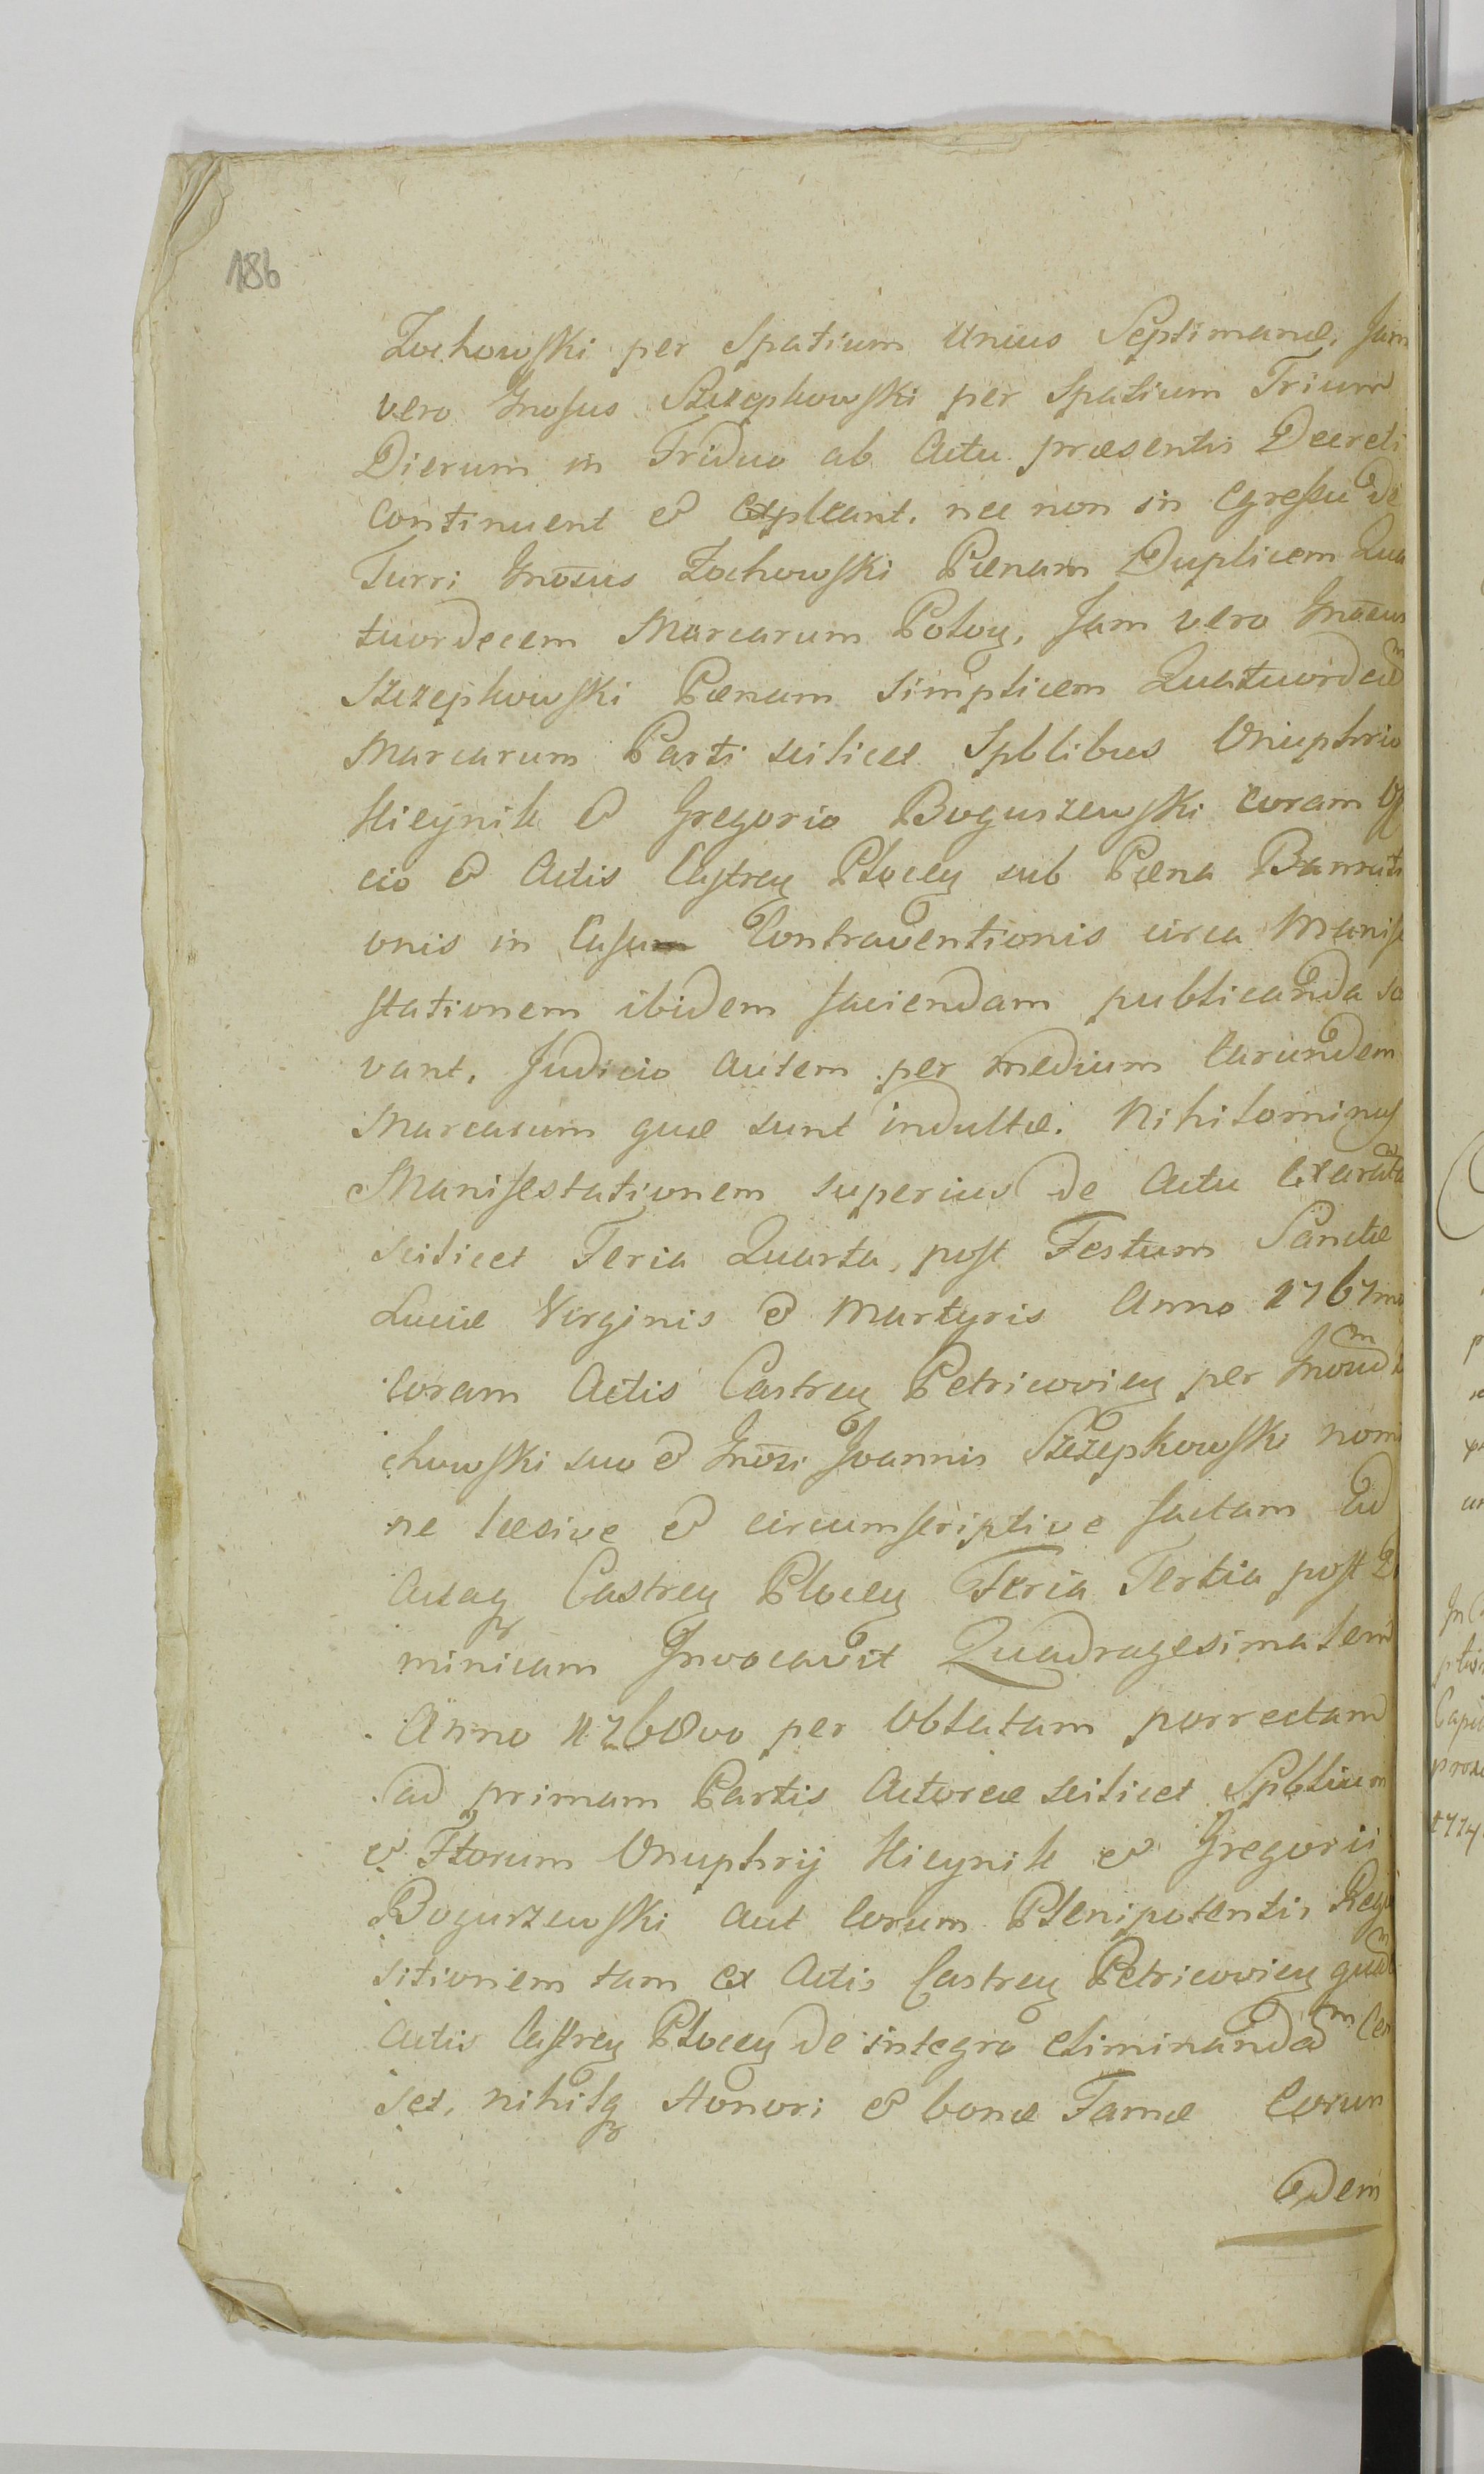 186
Zochowski per Spatium Unius Septimanæ, Jam
vero Gnosus Szczepkowski per Spatium Trium
Dierum in Triduo ab Actu præsentis Decreti
continuent & expleant. nec non in Egressu de
Turri Gnosus Zochowski Pœnam Duplicem Qua
tuordecem Marcarum Poloꝝ, Jam vero Gnosus
Szczepkowski Pœnam simplicem Quatuordecem
Marcarum Parti scilicet Spblibus Onuphrio
Hieynik & Gregorio Boguszewski coram Off
cio & Actis Castreꝝ Ploceꝝ sub Pœna Banniti
onis in Casu Contraventionis circa Manife
stationem ibidem faciendam publicanda so
vant, Judicio autem per medium earundem
Marcarum quæ sunt indultæ. Nihilominus
Manifestationem superius de Actu exarata
scilicet Feria Quarta, post Festum Sanctæ
Luciæ Virginis & Martyris Anno 1767mo
coram Actis Castreꝝ Petricovieꝝ per Gnoum
chowski suo & Gnosi Joannis Szczepkowski nomi
ne læsive & circumscriptive factam Ad
Actaq Castreꝝ Ploceꝝ Feria Tertia post Do
minicam Invocavit Quadragesimalem
Anno 1768vo per Oblatam porrectam
ad primam Partis Actoreæ scilicet Spblium
& Ftorum Onuphrij Hieynik & Gregorii
Boguszewski aut eorum Plenipotentis Requi
sitionem tam ex Actis Castreꝝ Petricovieꝝ quam
Actis Castreꝝ Ploceꝝ de integro eliminandam Cen
set, nihilq Honori & bonæ Famæ eorun
dem